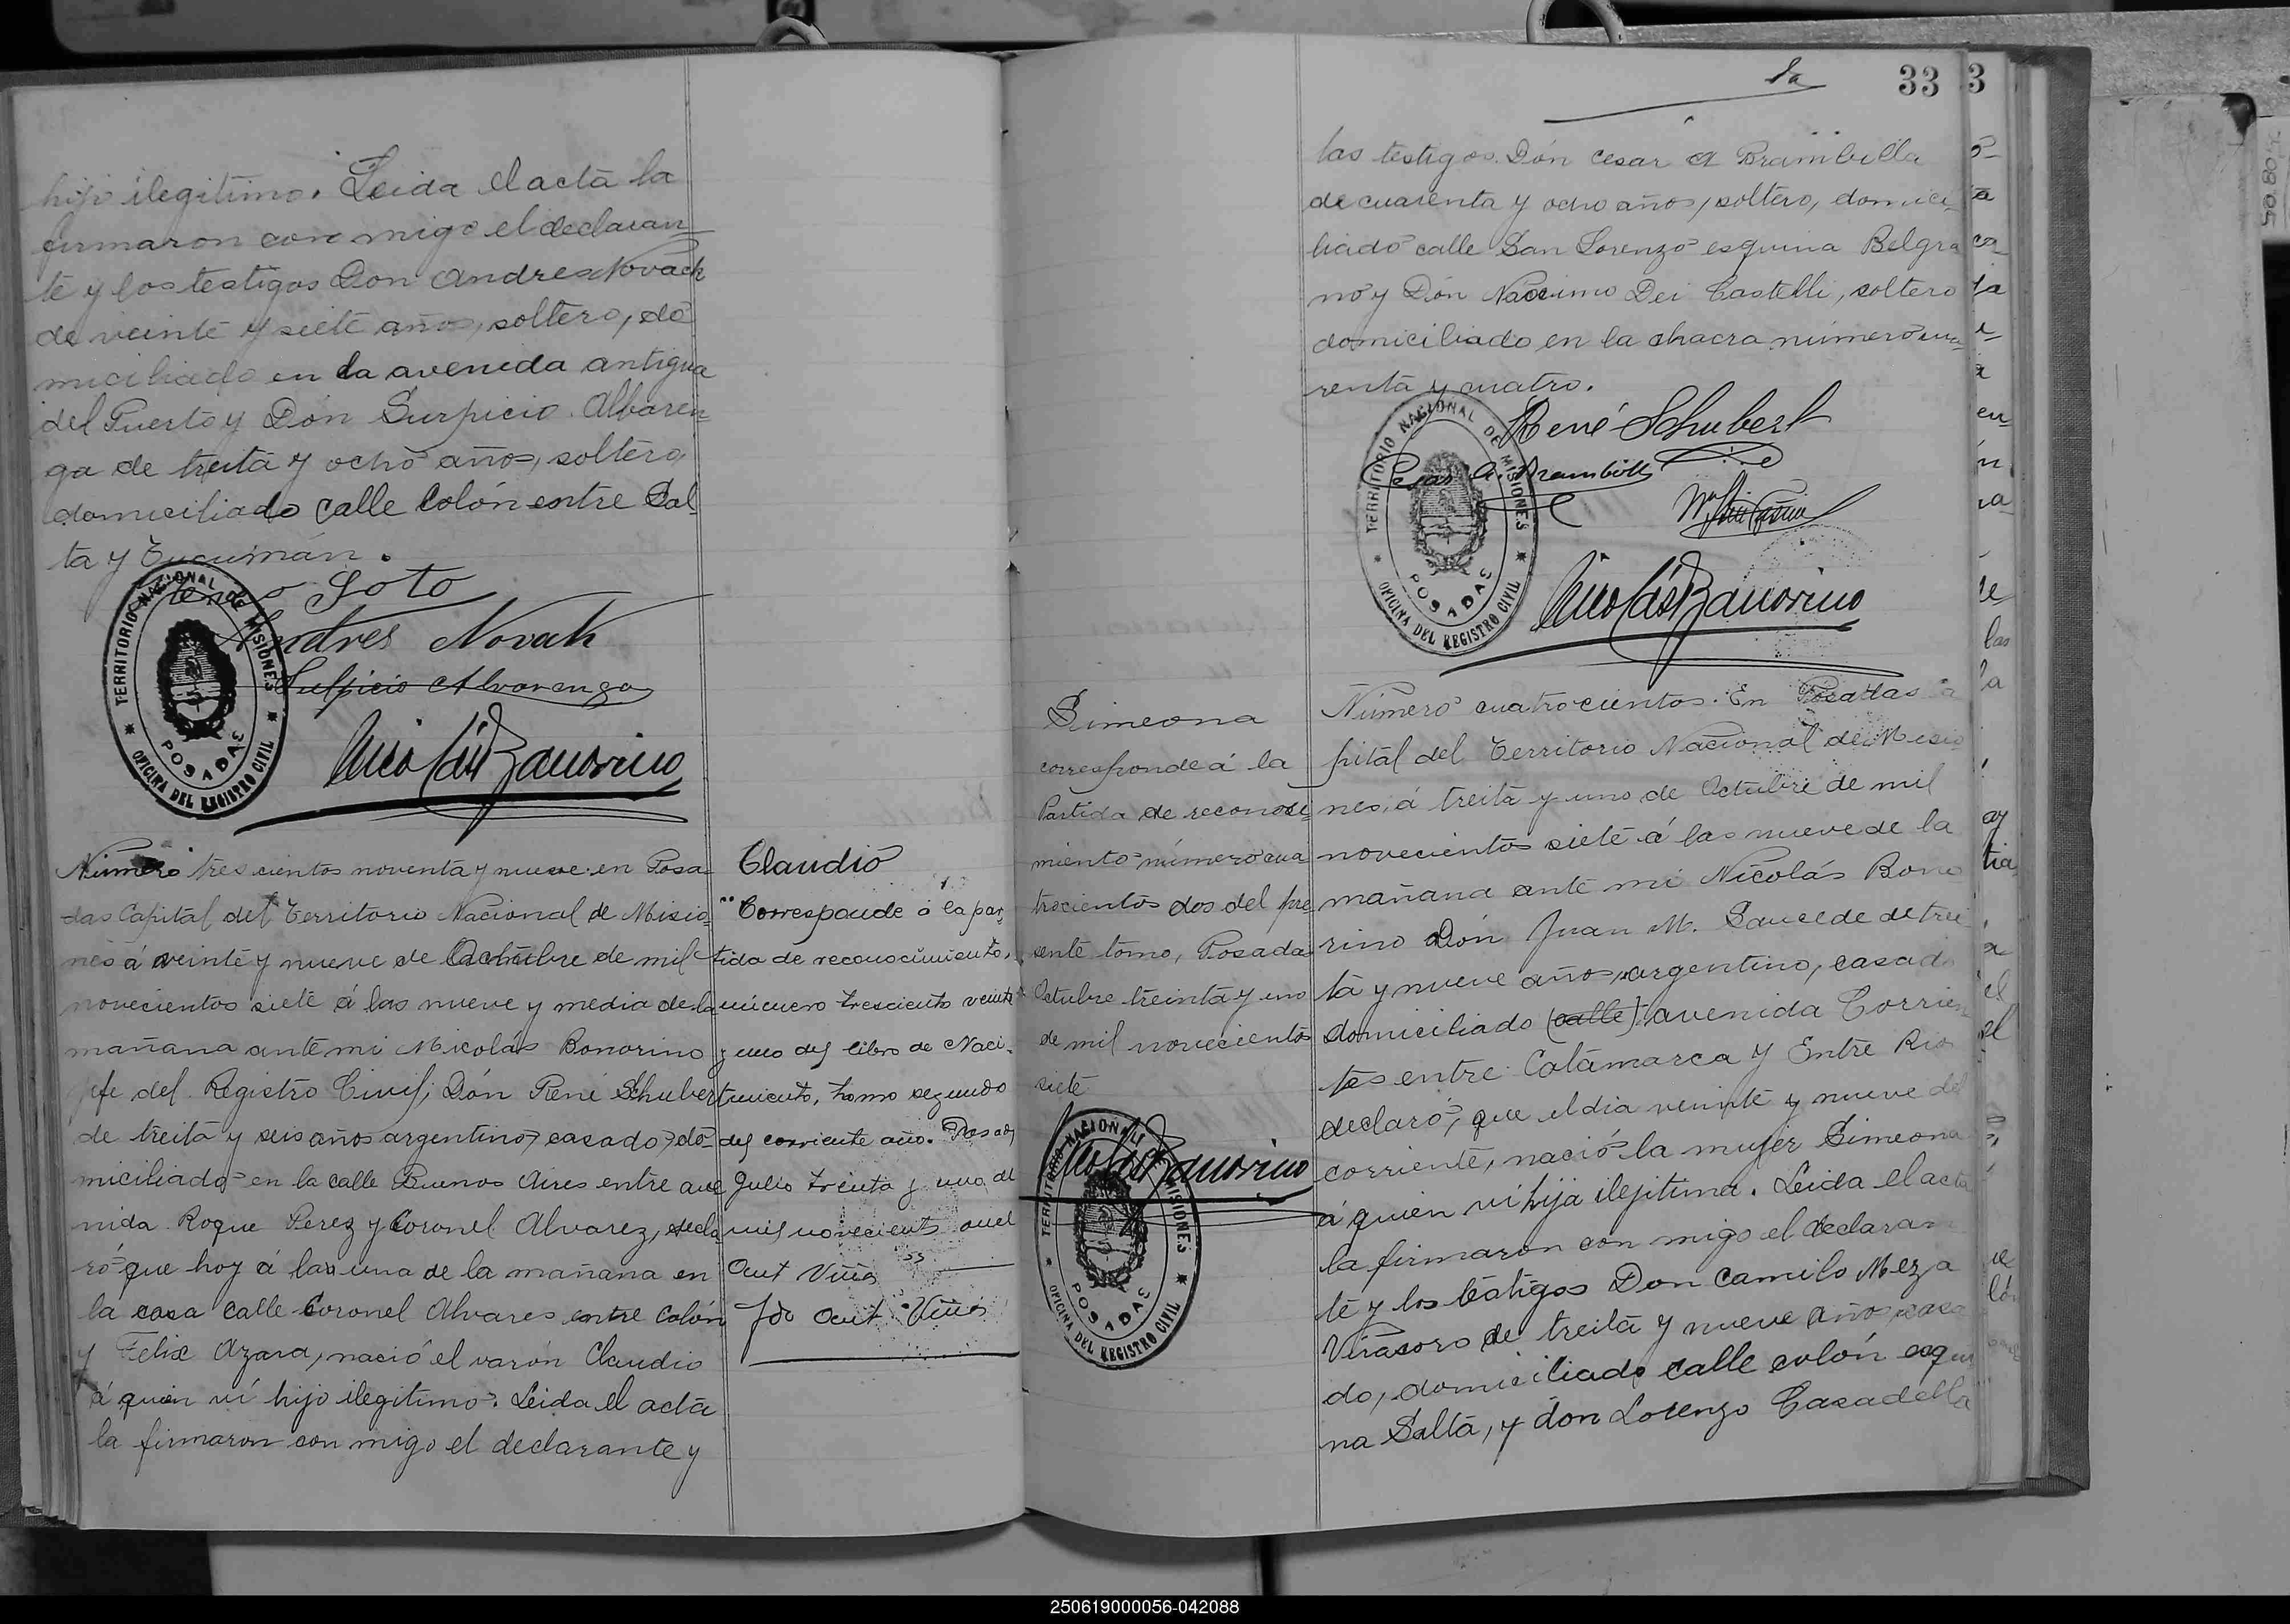 hijo ilegitimo. Leida el acta la
firmaron con migo el declaran-
te y los testigos Don Andres Novack
de veinte y siete años, soltero, do
miciliado en la avenida antigua
del Puerto y Dón Surpicio Albaren-
ga de treita y ocho años, soltero,
domiciliado calle Colón entre Sal-
ta y Tucumán.
Soto
Andres Novak
Sulpicio Alvarenga
Nicolás Bonorino
TERRITORIO NACIONAL DE MISIONES
POSADAS
OFICINA DEL REGISTRO CIVIL
Número tres cientos noventa y nueve en Posa-
das Capital del Territorio Nacional de Misio-
nes á veinte y nueve de Octubre de mil
novecientos siete á las nueve y media de la
mañana ante mi Nicolás Bonorino
jefe del Registro Civil, Dón René Schubert
de treita y seis años argentino, casado, do-
miciliado en la calle Buenos Aires entre ave
nida Roque Perez y Coronel Alvarez, decla
ró que hoy á las una de la mañana en
la casa calle Coronel Alvares entre Colón
y Felix Azara, nació el varón Claudio
á quien ví hijo ilegitimo. Leida el acta
la firmaron con migo el declarante y
Claudio
"Corresponde á la par-
tida de reconocimiento,
número trescientos veinte
y uno del libro de Naci-
miento, tomo segundo
del corriente año. Posadas
Julio treinta y uno de
mil novecients
33
las testigos Dón Cesar A Brambilla
de cuarenta y ocho años, soltero, domici-
liado calle San Lorenzo esquina Belgra
no y Dón Dei Castelli, soltero
domiciliado en la chacra número cua-
renta y cuatro.
René Schubert
Cesar A. Brambilla
Nicolás Bonorino
TERRITORIO NACIONAL DE MISIONES
POSADAS
OFICINA DEL REGISTRO CIVIL
Simeona
corresponde á la
Partida de reconoci-
miento número cua
trocientos dos del pre
sente tomo, Posadas
Octubre treinta y uno
de mil novecientos
siete
Nicolás Bonorino
TERRITORIO NACIONAL DE MISIONES
POSADAS
OFICINA DEL REGISTRO CIVIL
Número cuatrocientos. En Posadas Ca
pital del Territorio Nacional de Misio
nes, á treita y uno de Octubre de mil
novecientos siete á las nueve de la
mañana ante mi Nicolás Bono
rino Dón Juan M. Saucede de trei
ta y nueve años, argentino, casado
domiciliado (calle) avenida Corrien
tes entre Catamarca y Entre Rios
declaró, que el dia veinte y nueve del
corriente, nació la mujer Simeona
á quien ví hija ilejitima. Leida el acta
la firmaron con migo el declaran
te y los testigos Don Camilo Meza
Virasoro de treita y nueve años, casa
do, domiciliado calle colón esqui
na Salta, y don Lorenzo Casadella
250619000056-042088